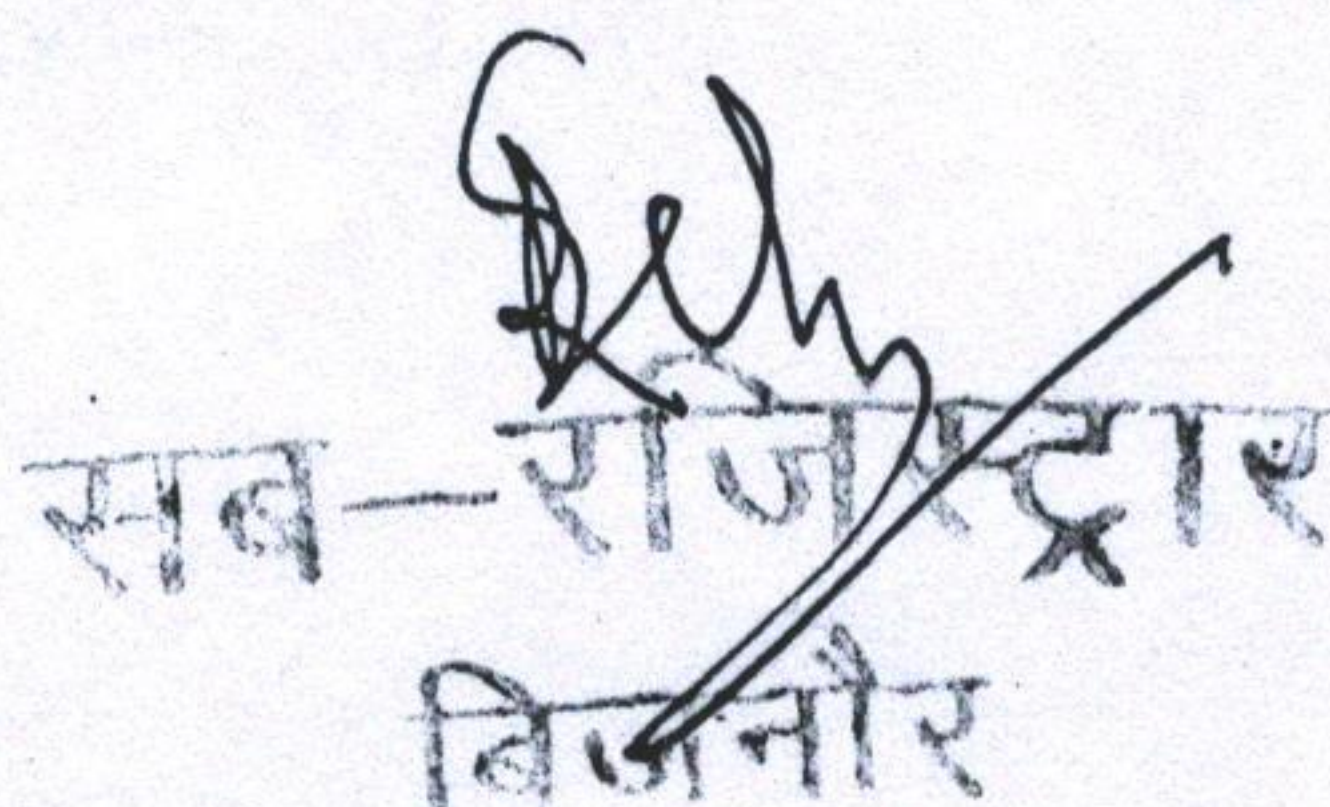 सब-रजिस्ट्रार
बिजनौर